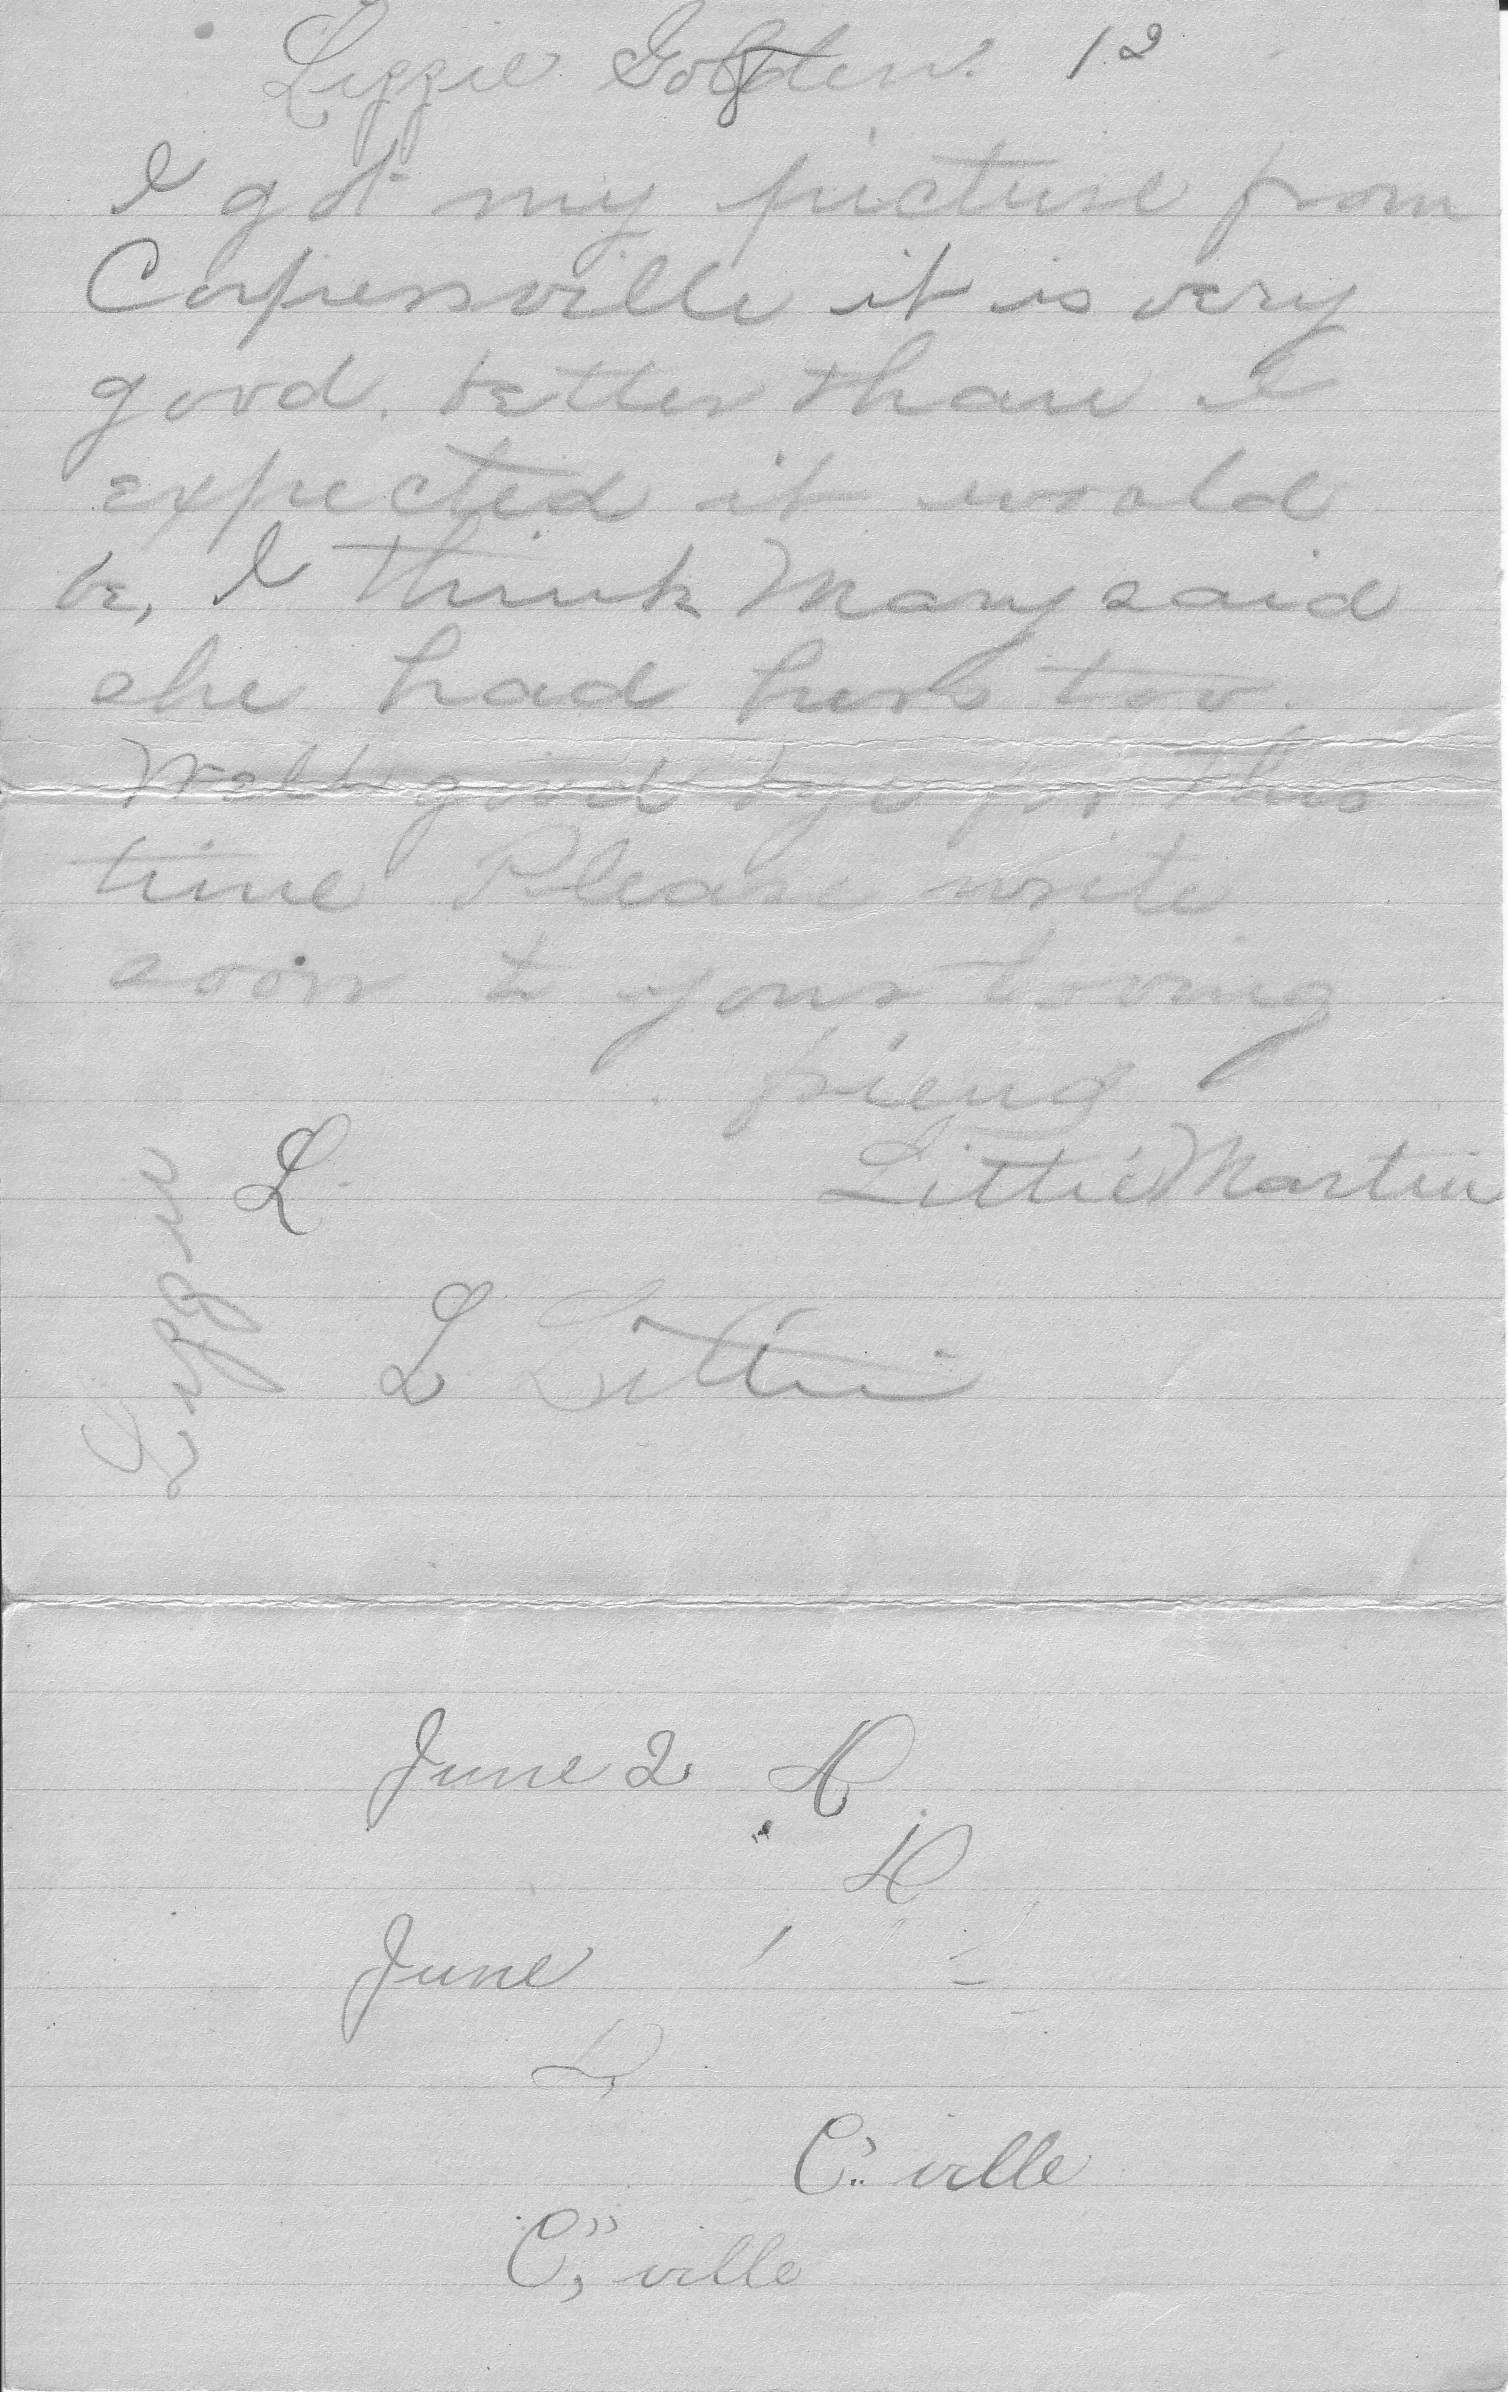 Lizzie Golden. 12
I got my picture from
Carpensville it is very
good. better than I
expected it would
be, I think Mary said
she had hers too.
Well good bye for this
time Please write
soon to your loving
friend
Littie Martin
L
L Littie
Lizzie
June 2 H
H
June
L
C" ville
C" ville